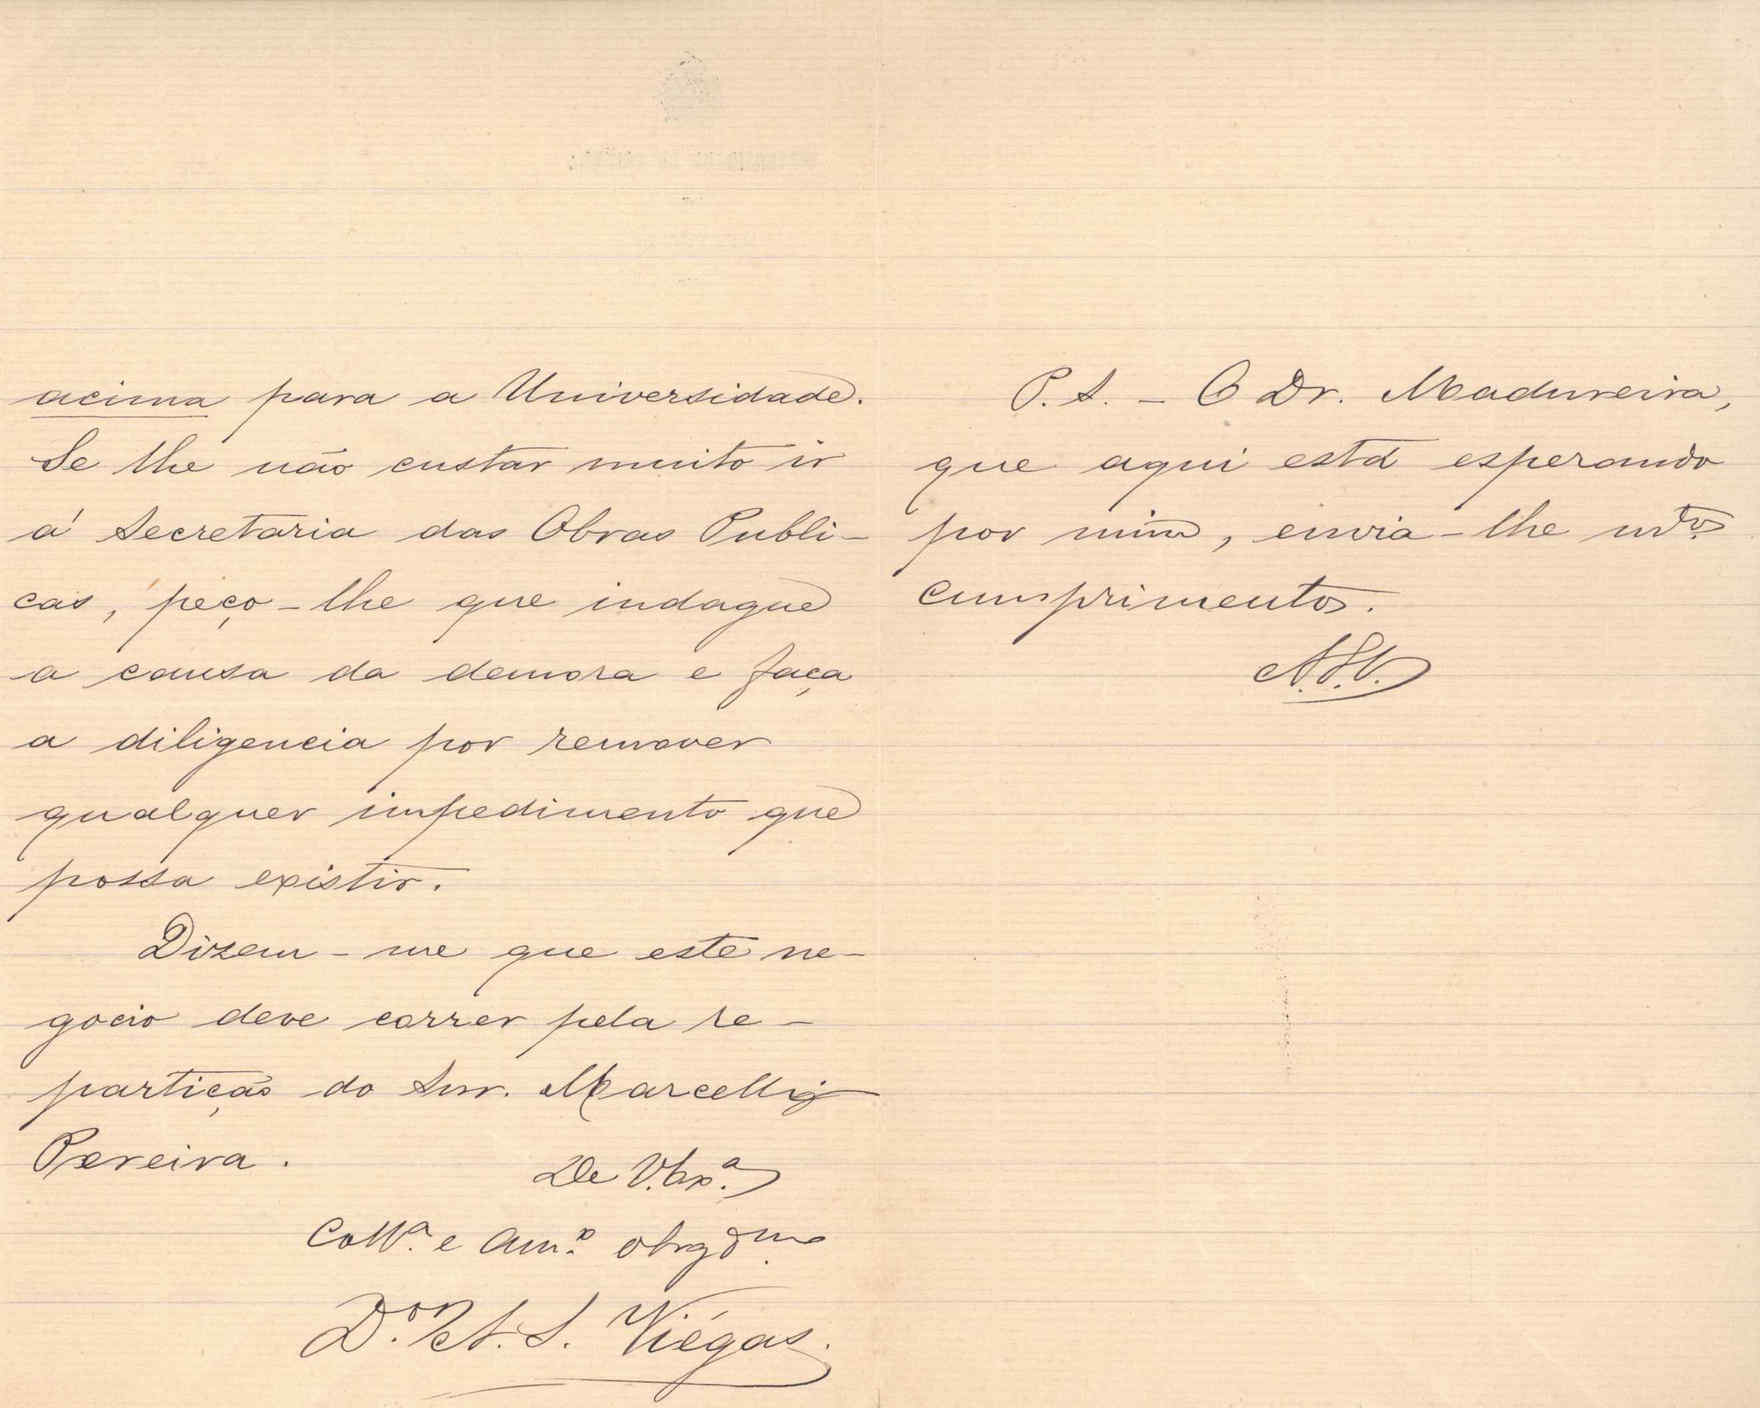 acima para a Universidade.
Se lhe não custar muito ir
á Secretaria das Obras Publi-
cas, peço-lhe que indague
a causa da demora e faça
a diligencia por remover
qualquer impedimento que
possa existir.
Dizem-me que este ne-
gocio deve correr pela re-
partição do Snr. Marcellig
Pereira.
De V. Exª.
Collª. e Amº. obrgdmo.
Dor A. S. Viégas.
P. S. - O Dr. Madureira,
que aqui está esperando
por mim, envia-lhe mtos
cumprimentos.
A. S. V.